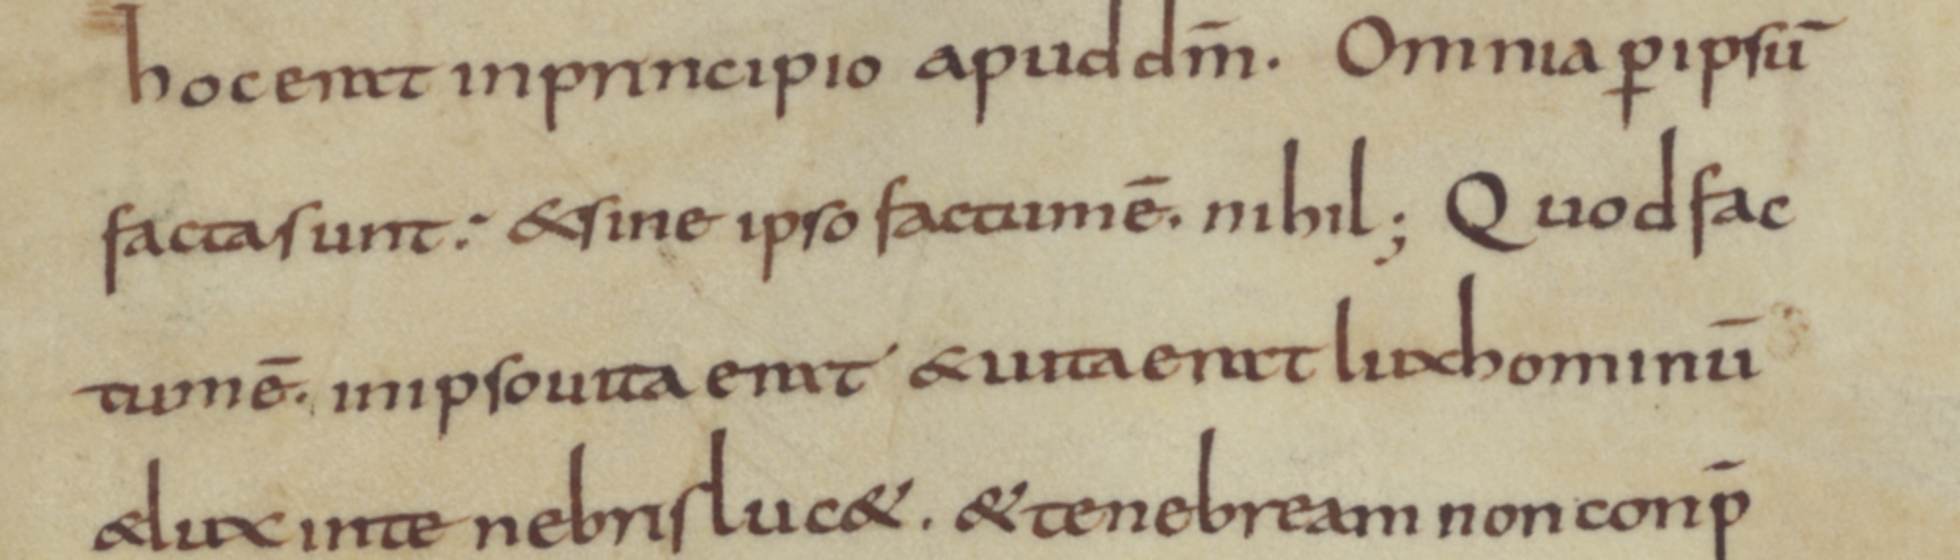 hoc erat in principio apud dm̄. Omnia ꝑ ipsū
facta sunt: & sine ipso factum ē. nihil; Quod fac
tum ē. in ipso uita erat & uita erat lux hominū
& lux in tenebris luc&. & tenebre am non conp̄